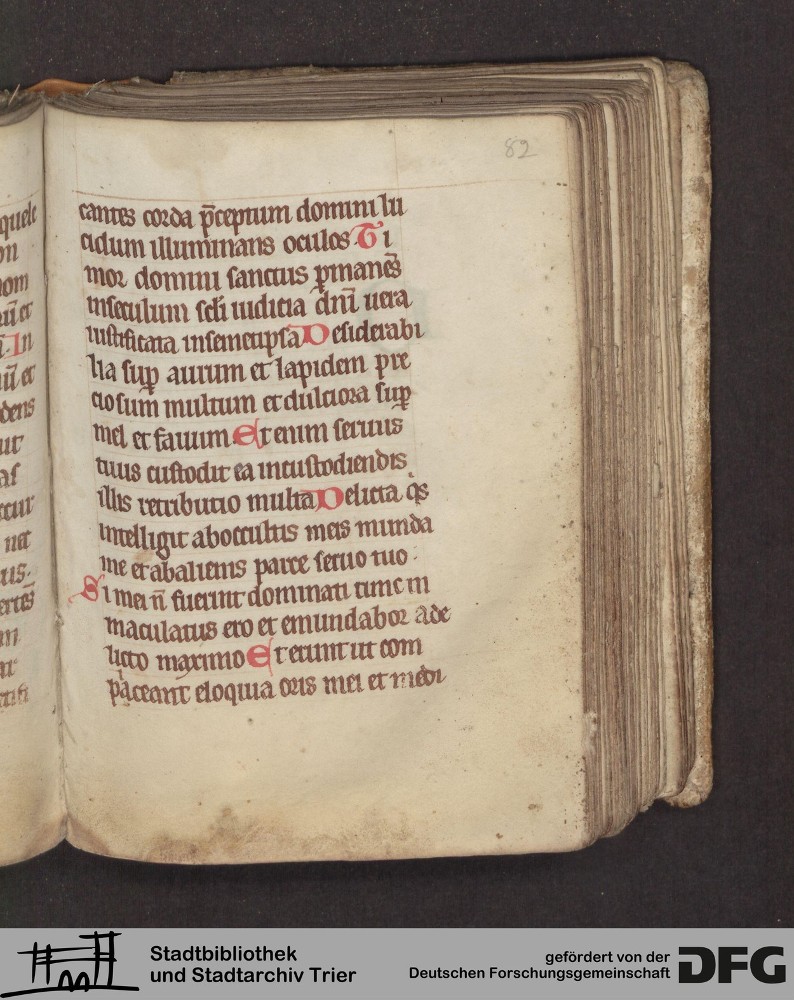 82
cantes corda p̄ceptum domini lu
cidum illuminans oculos Ti
mor domini sanctus ꝑmanēs
inseculum scłi iudicia dn̄i uera
iustificata insemetipsa Desiderabi
lia suꝑ aurum et lapidem pre
ciosum multum et dulciora suꝑ
mel et fauum Et enim seruus
tuus custodit ea incustodiendis
illis retributio multa Delicta q̄s
intelligit aboccultis meis munda
me et abalienis parce seruo tuo
Si mei n̄ fuerint dominati tunc in
maculatus ero et emundabor ade
licto maximo Et erunt ut com
placeant eloquia oris mei et medi
quele
on
nom
In
et
dens
ut
as
etur
nec
us
ertēs
Stadtbibliothek
und Stadtarchiv Trier
gefördert von der
Deutschen Forschungsgemeinschaft
DFG